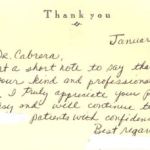 Thank you
January
Dr. Cabrera,
t a short note to say tha
our kind and professiona
. I truly appreciate your p
sy and will continue t
patients with confiden
Best regar